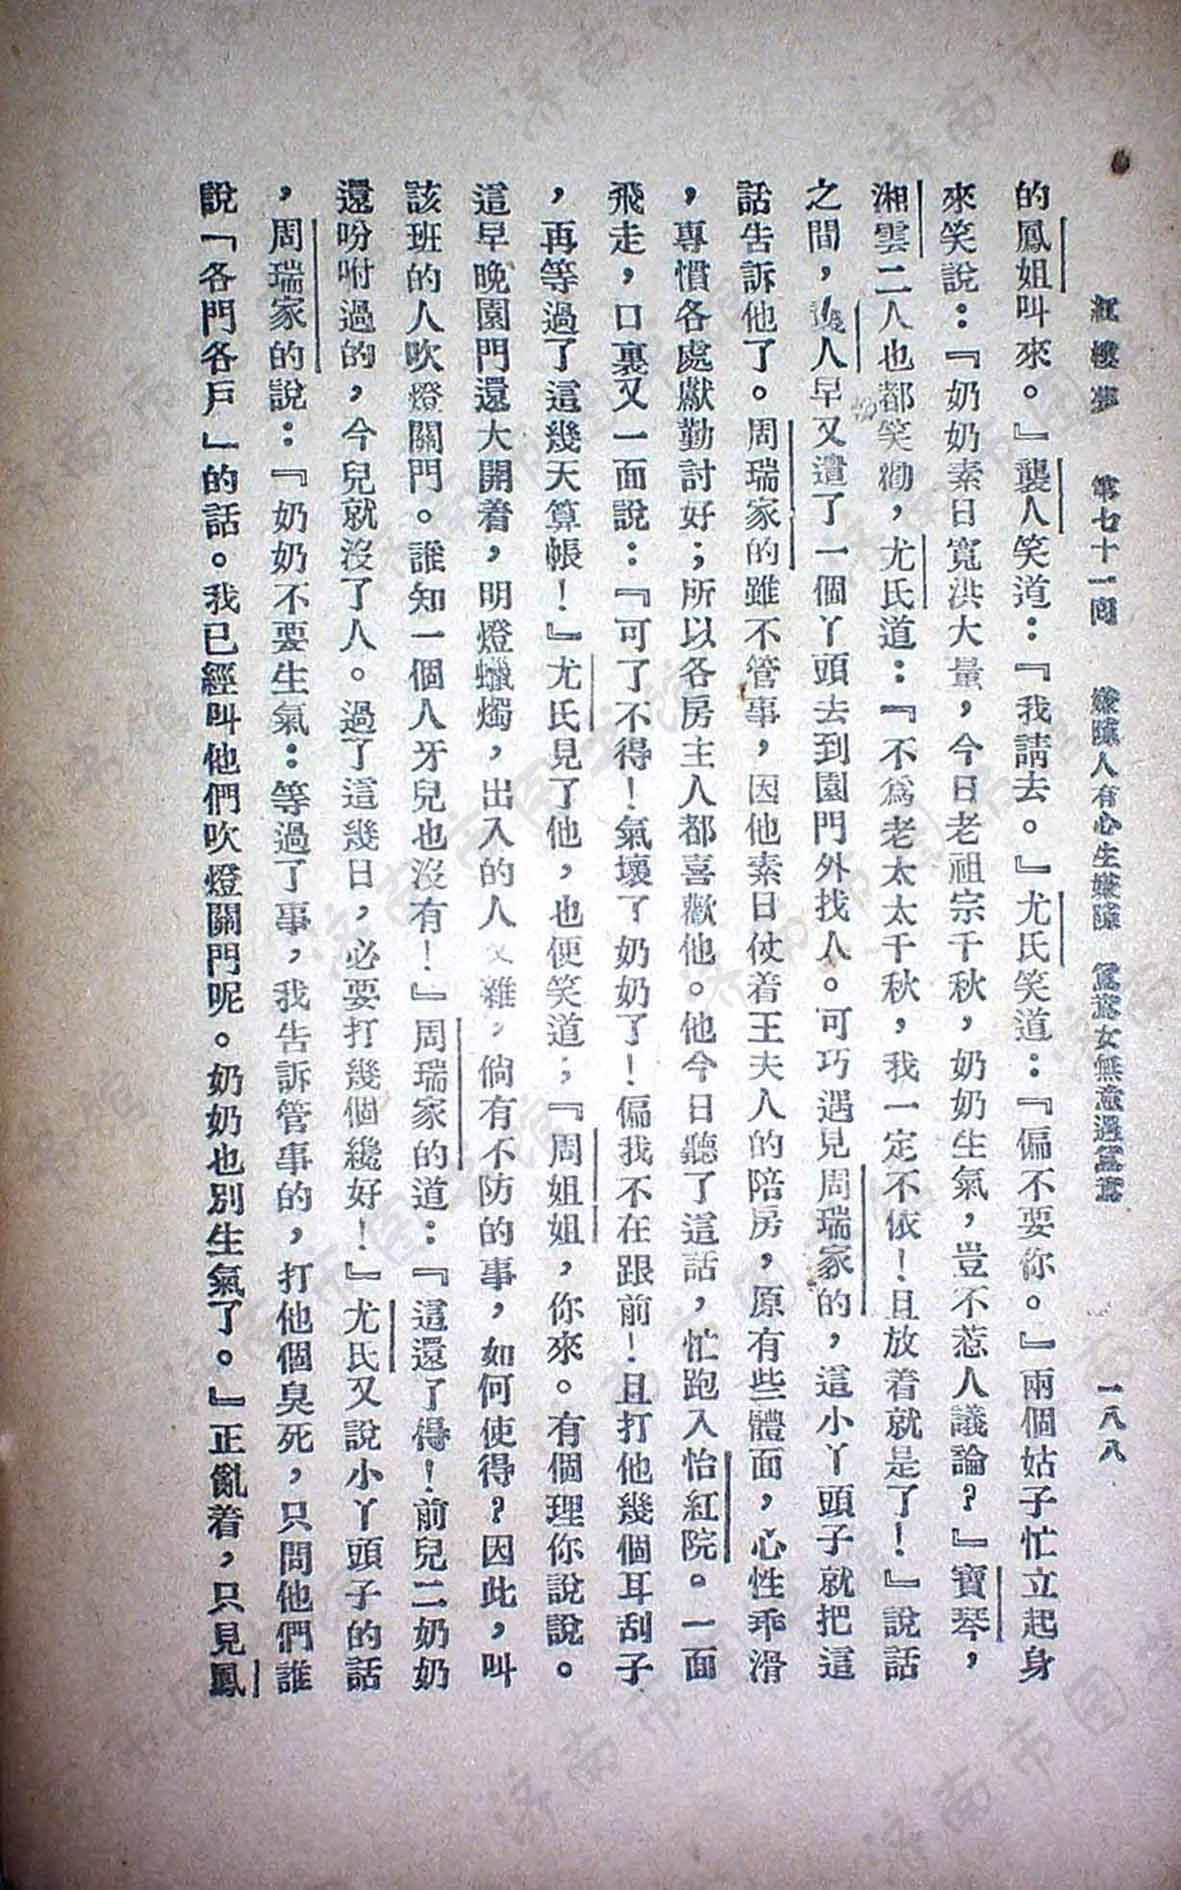 紅樓夢　第七十一回　嫌隙人有心生嫌隙　鴛鴦女無意遇鴛鴦　一八八
的鳳姐叫來。』襲人笑道：『我請去。』尤氏笑道：『偏不要你。』兩個姑子忙立起身
來笑說：『奶奶素日寬洪大量，今日老祖宗千秋，奶奶生氣，豈不惹人議論？』寶琴，
湘雲二人也都笑勸，尤氏道：『不爲老太太千秋，我一定不依！且放着就是了！』說話
之間，襲人早又遣了一個丫頭去到園門外找人。可巧遇見周瑞家的，這小丫頭子就把這
話告訴他了。周瑞家的雖不管事，因他素日仗着王夫人的陪房，原有些體面，心性乖滑
，專慣各處獻勤討好；所以各房主人都喜歡他。他今日聽了這話，忙跑入怡紅院。一面
飛走，口裏又一面說：『可了不得！氣壞了奶奶了！偏我不在跟前！且打他幾個耳刮子
，再等過了這幾天算帳！』尤氏見了他，也便笑道；『周姐姐，你來。有個理你說說。
這早晚園門還大開着，明燈蠟燭，出入的人又雜，倘有不防的事，如何使得？因此，叫
該班的人吹燈關門。誰知一個人牙兒也沒有！』周瑞家的道：『這還了得！前兒二奶奶
還吩咐過的，今兒就沒了人。過了這幾日，必要打幾個纔好！』尤氏又說小丫頭子的話
，周瑞家的說：『奶奶不要生氣：等過了事，我告訴管事的，打他個臭死，只問他們誰
說「各門各戶」的話。我已經叫他們吹燈關門呢。奶奶也別生氣了。』正亂着，只見鳳